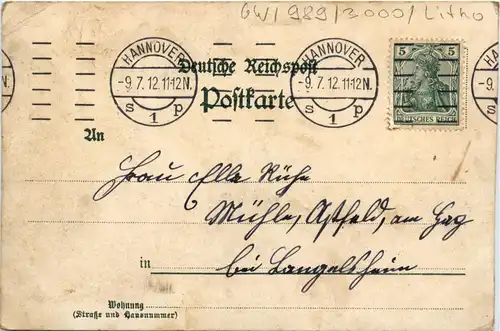 GW/989/3000/Litho
HANNOVER
-9.7.12.11-12N.
S 1 p
HANNOVER
-9.7.12.11-12N.
S 1 p
5 5
DEUTSCHES REICH
Deutsche Reichspost
Postkarte
An
Frau Elle Rühe
Mühle, Astfeld, am Harz
in bei Langelsheim
Wohnung
(Straße und Hausnummer)